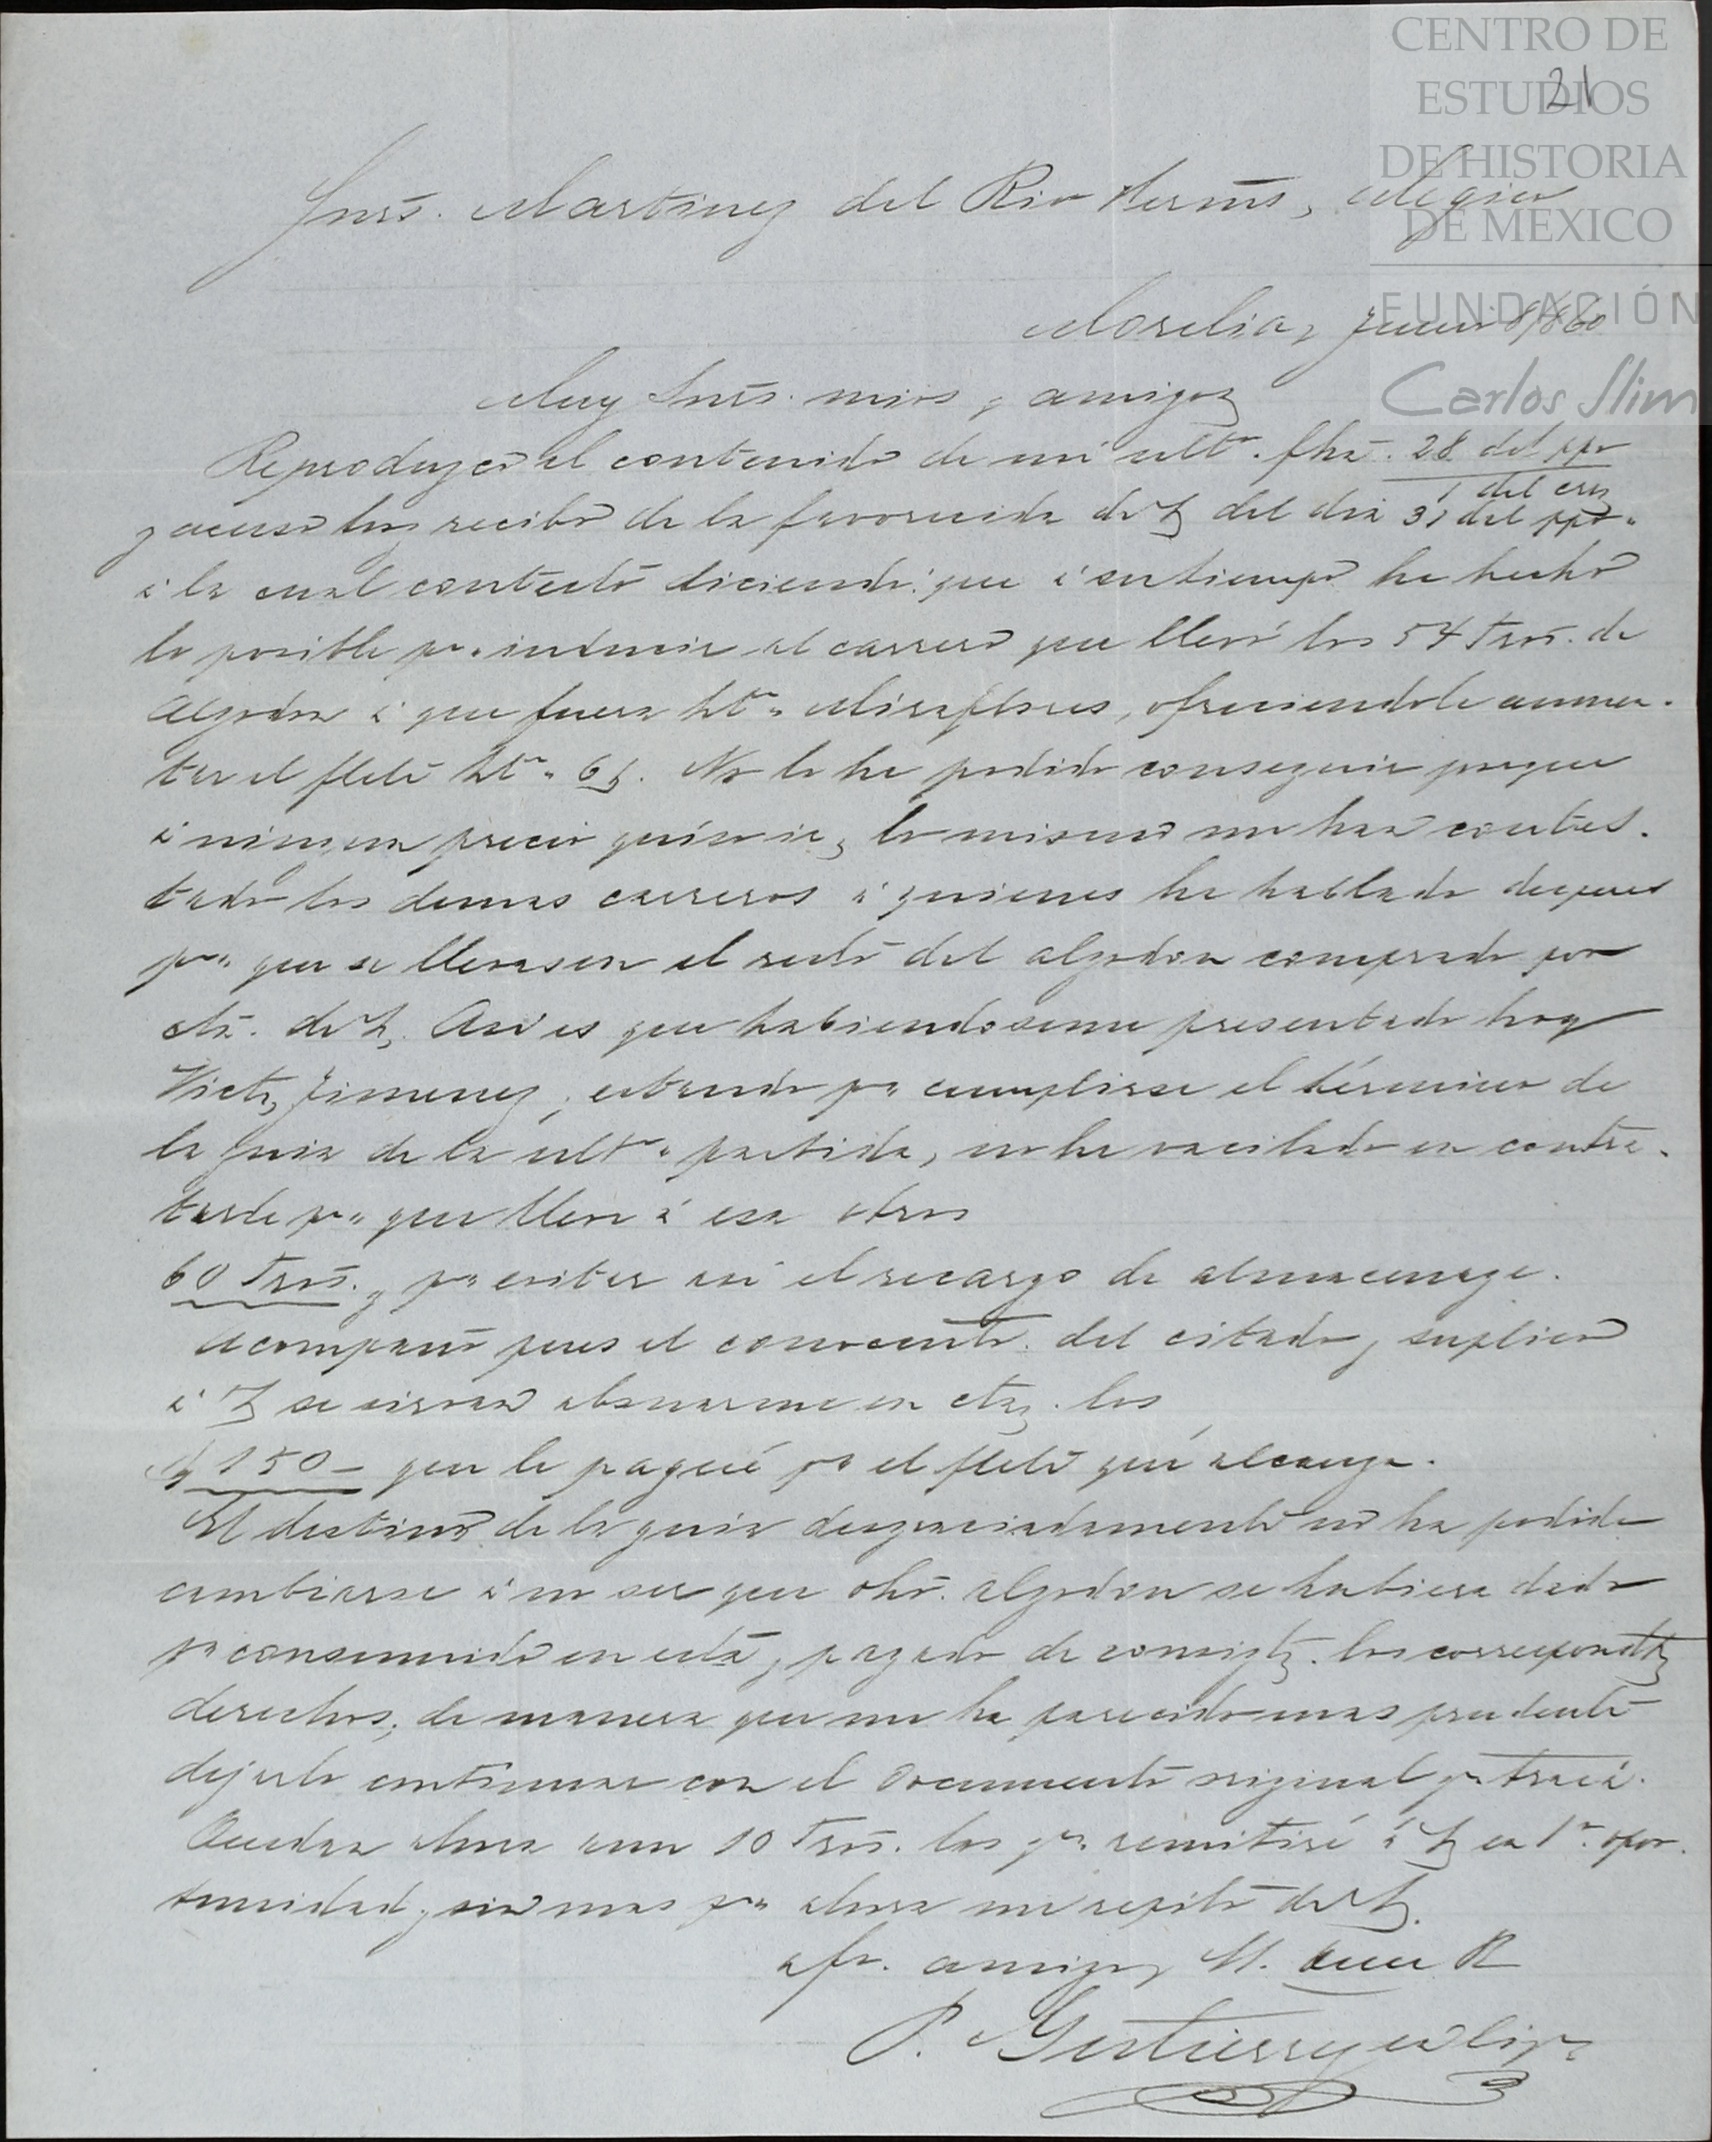 CENTRO DE
ESTUDIOS
DE HISTORIA
DE MEXICO
FUNDACIÓN
Carlos Slim
21
Snrs. Martinez del Rio Herms, Megico
Morelia, Junio 8/860
Muy Snrs. mios y amigos
Reproduzco el contenido de mi ult.º fha. 28 del ppo
1 del cte
y acuso hoy recibo de la favorecida de V del dia 31 del ppo.
á la cual contesto diciendo: que á su tiempo he hecho
lo posible pa. inducir al carrero que llevó los 54 Tros. de
Algodon á que fuera hta. Miraflores, ofreciendole aumen-
tar el flete hta. 6 $. No lo he podido conseguir porque
á ningun precio quiso ir, lo mismo me han contes-
tado los demas carreros á quienes he hablado despues
pa. que se llevasen el resto del algodon comprado por
cta. de V. Asi es que habiendoseme presentado hoy
Victe. Jimenez, estando pa. cumplirse el término de
la guia de la ult.a partida, no he vacilado en contra-
tarle pa. que lleve á esa otros
60 Tros. y pa. evitar asi el recargo de almacenage.
Acompaño pues el conocimto. del citado, y suplico
á V se sirvan abonarme en cta. los
$ 150 - que le pagué pr el flete que alcanza.
El destino de la guia desgraciadamente no ha podido
cambiarse á no ser que dho. algodon se hubiera dado
pr consumido en esta, y pagado de consigte. los correspondtes
derechos; de manera que me ha parecido mas prudente
dejarlo continuar con el documento original qe traia.
Quedan ahora aun 10 Tros. los qe remitiré á V en 1a. opor-
tunidad, y sin mas pr. ahora me repito de V.
afo. amigo y
P. Gutierrez